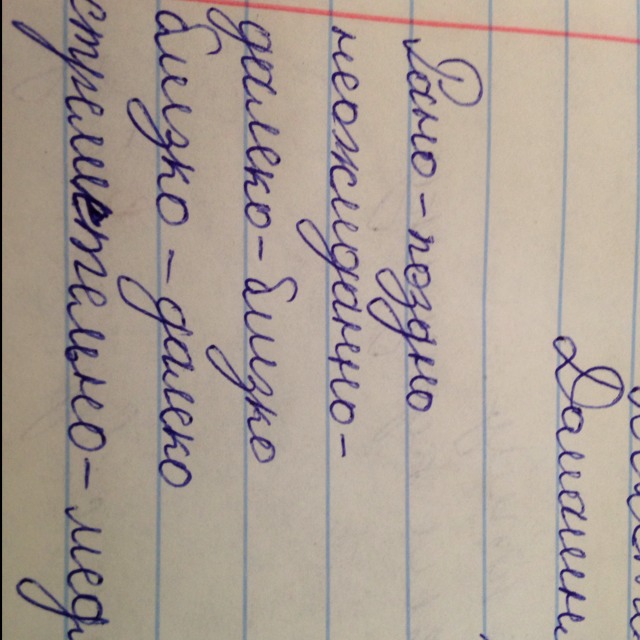 Домашн
Рано-поздно
неожиданно-
далеко-близко
близко-далеко
стремительно-мед